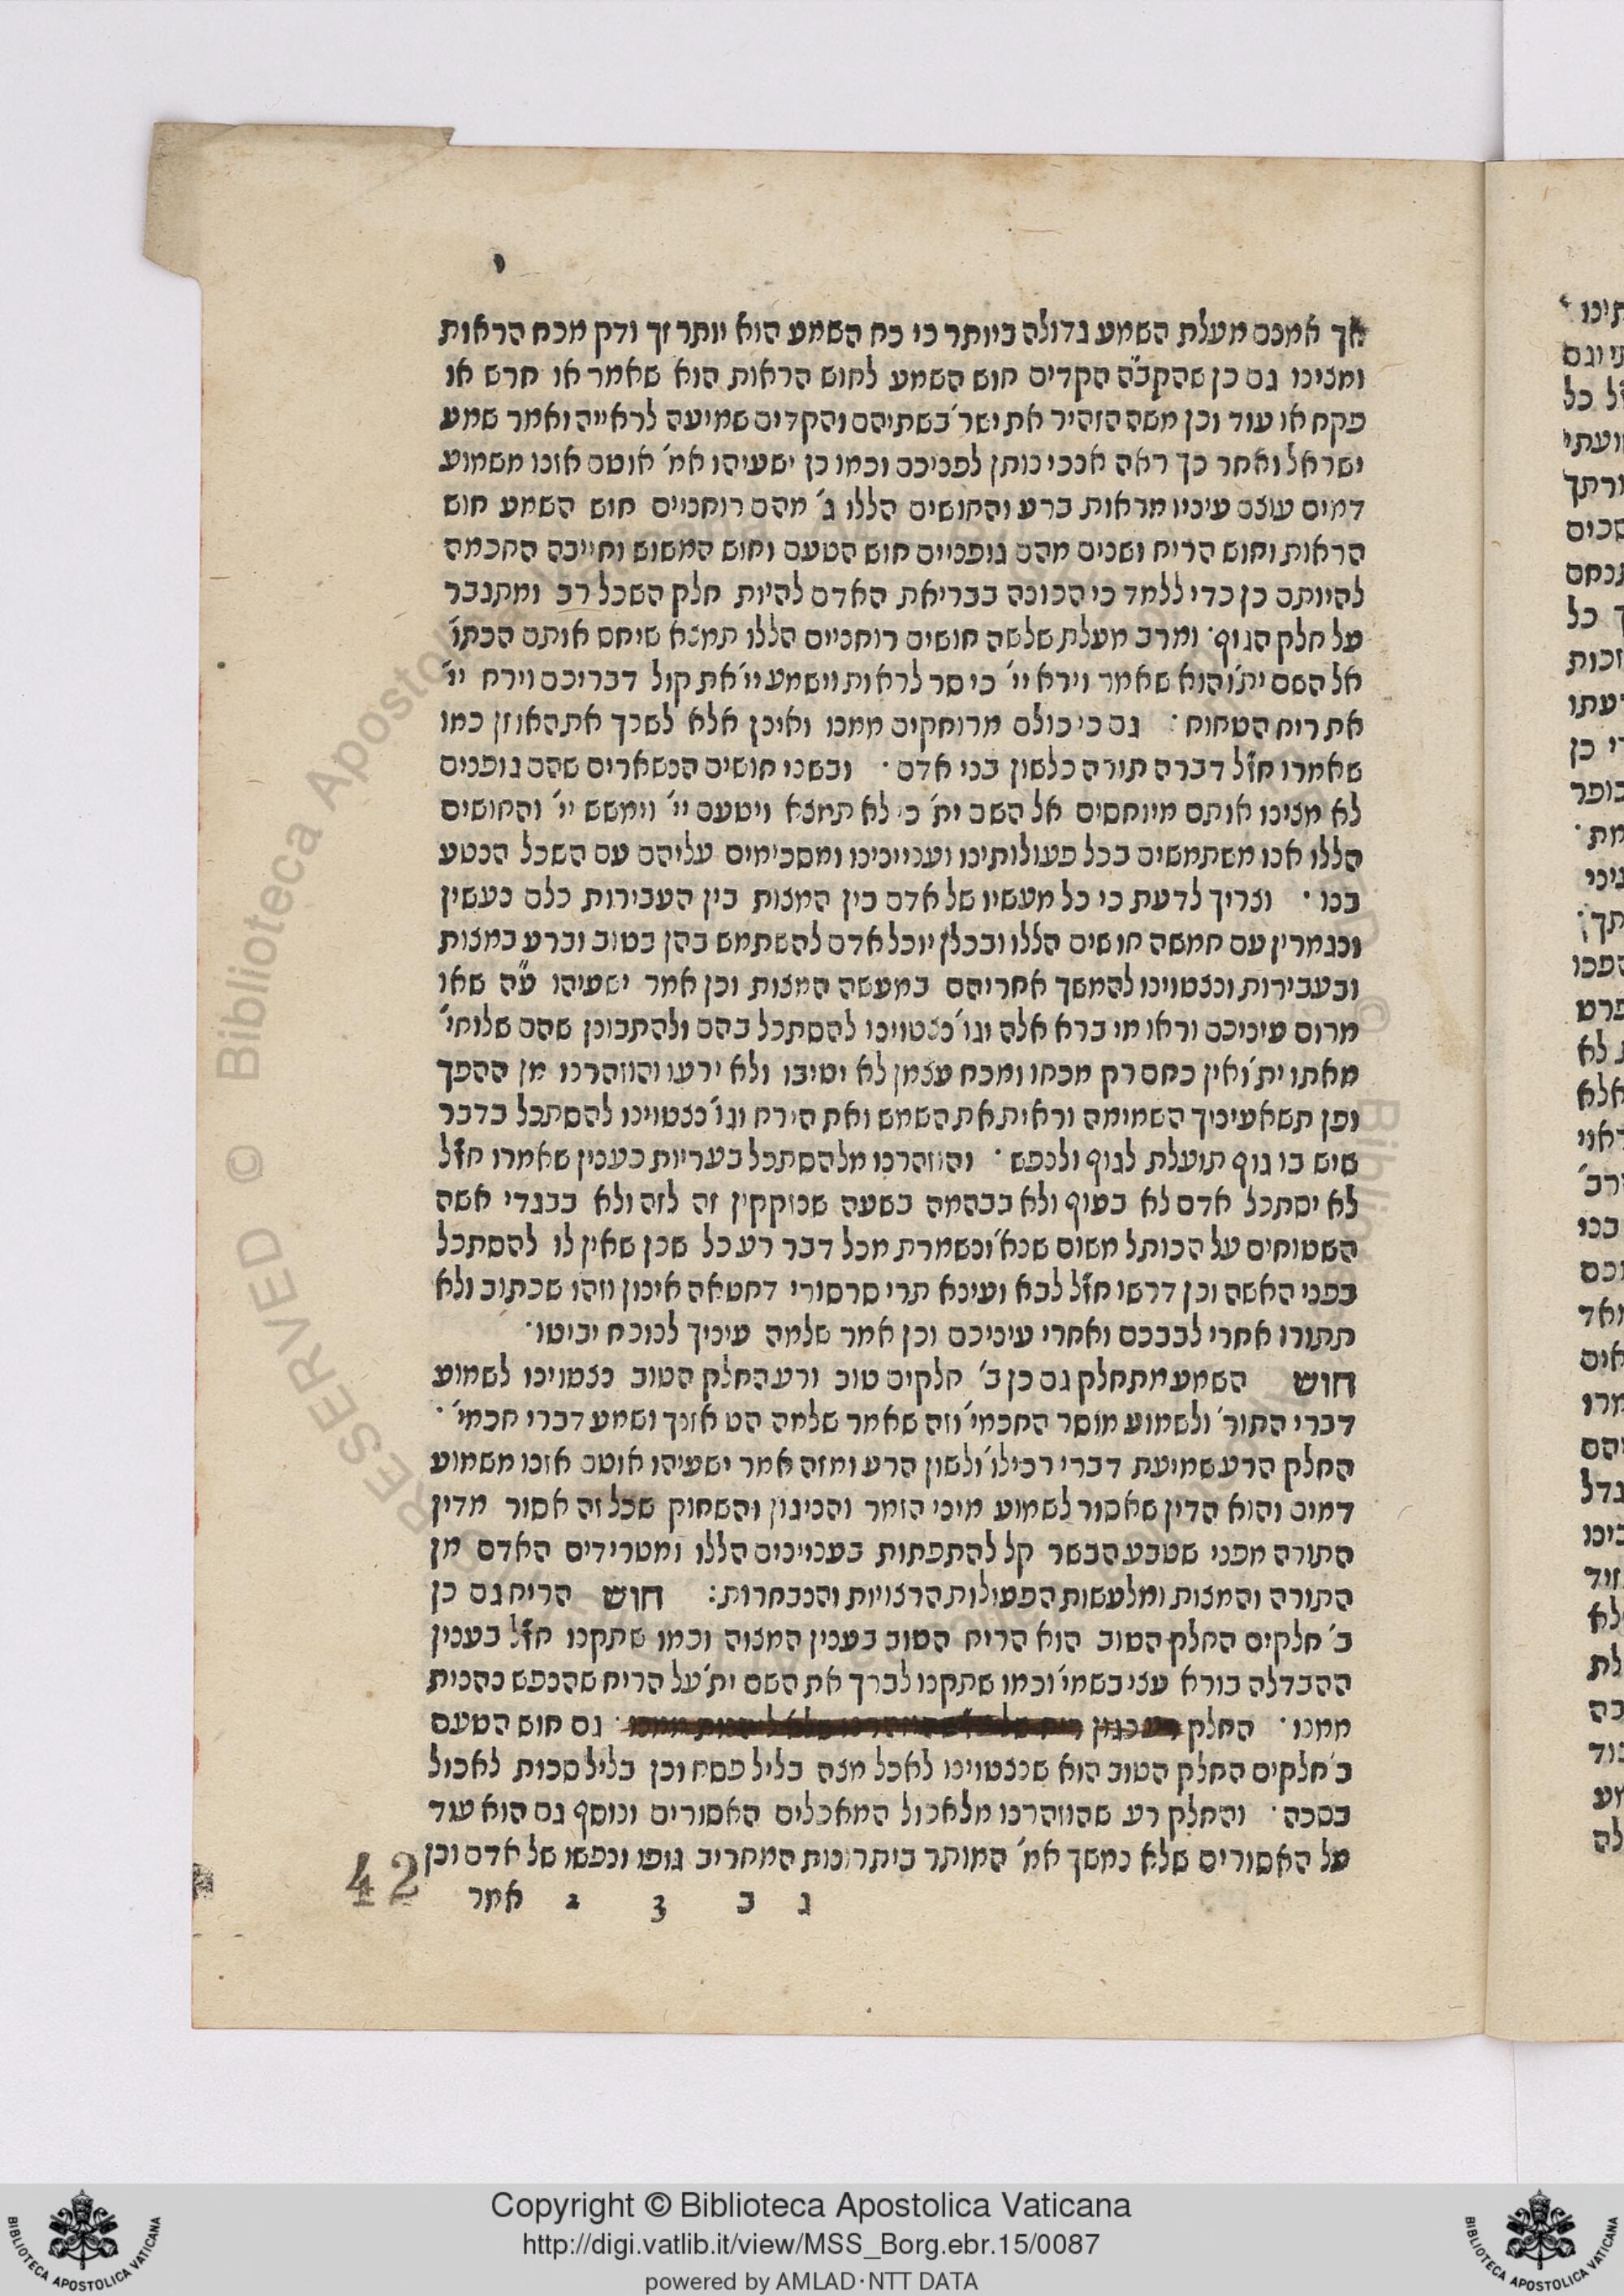 אך אמנם מעלת השמע גדולה ביותר כי כח השמע הוא יותר זך ודק מכח הראות
ומצינו גם כן שהקב״ה הקדים חוש השמע לחוש הראות הוא שאמר או חרש או
פקח או עור וכן משה הזהיר את ישר׳ בשתיהם והקדים שמיעה לראייה ואמר שמע
ישראל ואחר כך ראה אנכי נותן לפניכם וכמו כן ישעיהו אמ׳ אוטם אזנו משמוע
דמים עוצם עיניו מראות ברע והחושים הללו ג׳ מהם רוחניים חוש השמע חוש
הראות וחוש הריח ושנים מהם גופניים חוש הטעם וחוש המשוש וחייבה החכמה
להיותם כן כדי ללמד כי הכונה בבריאת האדם להיות חלק השכל רב ומתגבר
על חלק הגוף· ומרב מעלת שלשה חושים רוחניים הללו תמצא שיחס אותם הכתו׳
אל השם ית׳ והוא שאמר וירא יי׳ כי סר לראות וישמע יי׳ את קול דבריכם וירח יי׳
את ריח הניחוח· גם כי כולם מרוחקים ממנו ואינן אלא לשכך את האוזן כמו
שאמרו חז״ל דברה תורה כלשון בני אדם· ובשני חושים הנשארים שהם גופנים
לא מצינו אותם מיוחסים אל השם ית׳ כי לא תמצא ויטעם יי׳ וימשש יי׳ והחושים
הללו אנו משתמשים בכל פעולותינו ועניינינו ומסכימים עליהם עם השכל הנטע
בנו· וצריך לדעת כי כל מעשיו של אדם בין המצות בין העבירות כלם נעשין
ונגמרין עם חמשה חושים הללו ובכלן יוכל אדם להשתמש בהן בטוב וברע במצות
ובעבירות ונצטוינו להמשך אחריהם במעשה המצות וכן אמר ישעיהו ע״ה שאו
מרום עיניכם וראו מי ברא אלה וגו׳ נצטוינו להסתכל בהם ולהתבונן שהם שלוחי׳
מאתו ית׳ ואין כחם רק מכחו ומכח עצמן לא יטיבו ולא ירעו והוזהרנו מן ההפך
ופן תשא עיניך השמימה וראית את השמש ואת הירח וגו׳ נצטוינו להסתכל בדבר
שיש בו גוף תועלת לגוף ולנפש· והוזהרנו מלהסתכל בעריות כענין שאמרו חז״ל
לא יסתכל אדם לא בעוף ולא בבהמה בשעה שנזקקין זה לזה ולא בבגדי אשה
השטוחים על הכותל משום שנא׳ ונשמרת מכל דבר רע כל שכן שאין לו להסתכל
בפני האשה וכן דרשו חז״ל לבא ועינא תרי סרסורי דחטאה אינון וזהו שכתוב ולא
תתורו אחרי לבבכם ואחרי עיניכם וכן אמר שלמה עיניך לנוכח יביטו·
חוש השמע מתחלק גם כן ב׳ חלקים טוב ורע החלק הטוב נצטוינו לשמוע
דברי התור׳ ולשמוע מוסר החכמי׳ וזה שאמר שלמה הט אזנך ושמע דברי חכמי׳·
החלק הרע שמיעת דברי רכילו׳ ולשון הרע ומזה אמר ישעיהו אוטם אזנו משמוע
דמים והוא הדין שאסור לשמוע מיני הזמר והניגון והשחוק שכל זה אסור מדין
התורה מפני שטבע הבשר קל להתפתות בענינים הללו ומטרידים האדם מן
התורה והמצות ומלעשות הפעולות הרצויות והנבחרות: חוש הריח גם כן
ב׳ חלקים החלק הטוב הוא הריח הטוב בענין המצוה וכמו שתקנו חז״ל בענין
ההבדלה בורא עצי בשמי׳ וכמו שתקנו לברך את השם ית׳ על הריח שהנפש נהנית
ממנו· החלק גם חוש הטעם
ב׳ חלקים החלק הטוב הוא שנצטוינו לאכל מצה בליל פסח וכן בליל סכות לאכול
בסכה· והחלק רע שהוזהרנו מלאכול המאכלים האסורים ונוסף גם הוא עוד
על האסורים שלא נמשך אח׳ המותר ביתרונות המחריב גופו ונפשו של אדם וכן
ג ב 3 2 אמר
42
Copyright © Biblioteca Apostolica Vaticana
http://digi.vatlib.it/view/MSS_Borg.ebr.15/0087
powered by AMLAD·NTT DATA